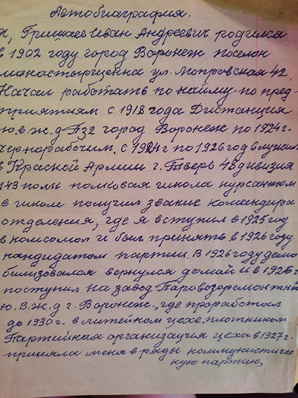 Автобиография.
я, Гришаев Иван Андреевич родился
в 1902 году город Воронеж поселок
монастырщенка ул. Мопровская 42.
Начал работать по найму по пред-
приятиям с 1918 года Дистанция
ю.в.ж.д ПЗ2 город Воронеж по 1924 г.
чернорабочим. с 1924 г по 1926 год служил
в Красной Армии г. Тверь 48 дивизия
143 полк полковая школа курсантом
в школе получил звание командира
отделения, где я вступил в 1925 году
в комсомол и был принять в 1926 году
кандидатом партии. В 1926 году демо
билизовался вернулся домой и в 1926 г
поступил на завод Паровозоремонтный
ю.В.ж.д г. Воронеж, где проработал
до 1930 г. в литейном цехе, плотником
Партийная организация цеха в 1927 г.
приняла меня в ряды коммунистичес
кую партию.